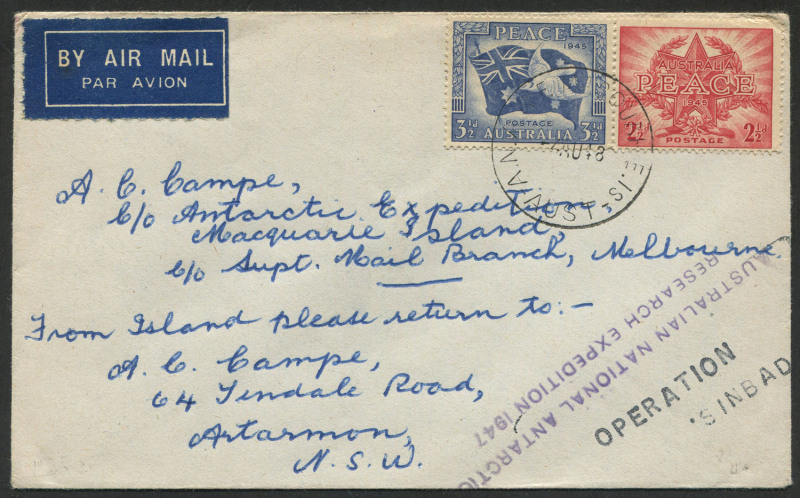 BY AIR MAIL
PAR AVION
PEACE
1945
POSTAGE
3½d AUSTRALIA 3½d
AUSTRALIA
PEACE
1945
2½d 2½d
POSTAGE
AU 48
AUST
A. C. Campe,
C/o Antarctic Expedition,
Macquarie Island,
c/o Supt. Mail Branch, Melbourne.
From Island please return to:-
A. C. Campe,
64 Tindale Road,
Artarmon,
N.S.W.
AUSTRALIAN NATIONAL ANTARCTIC
RESEARCH EXPEDITION 1947
OPERATION
SINBAD